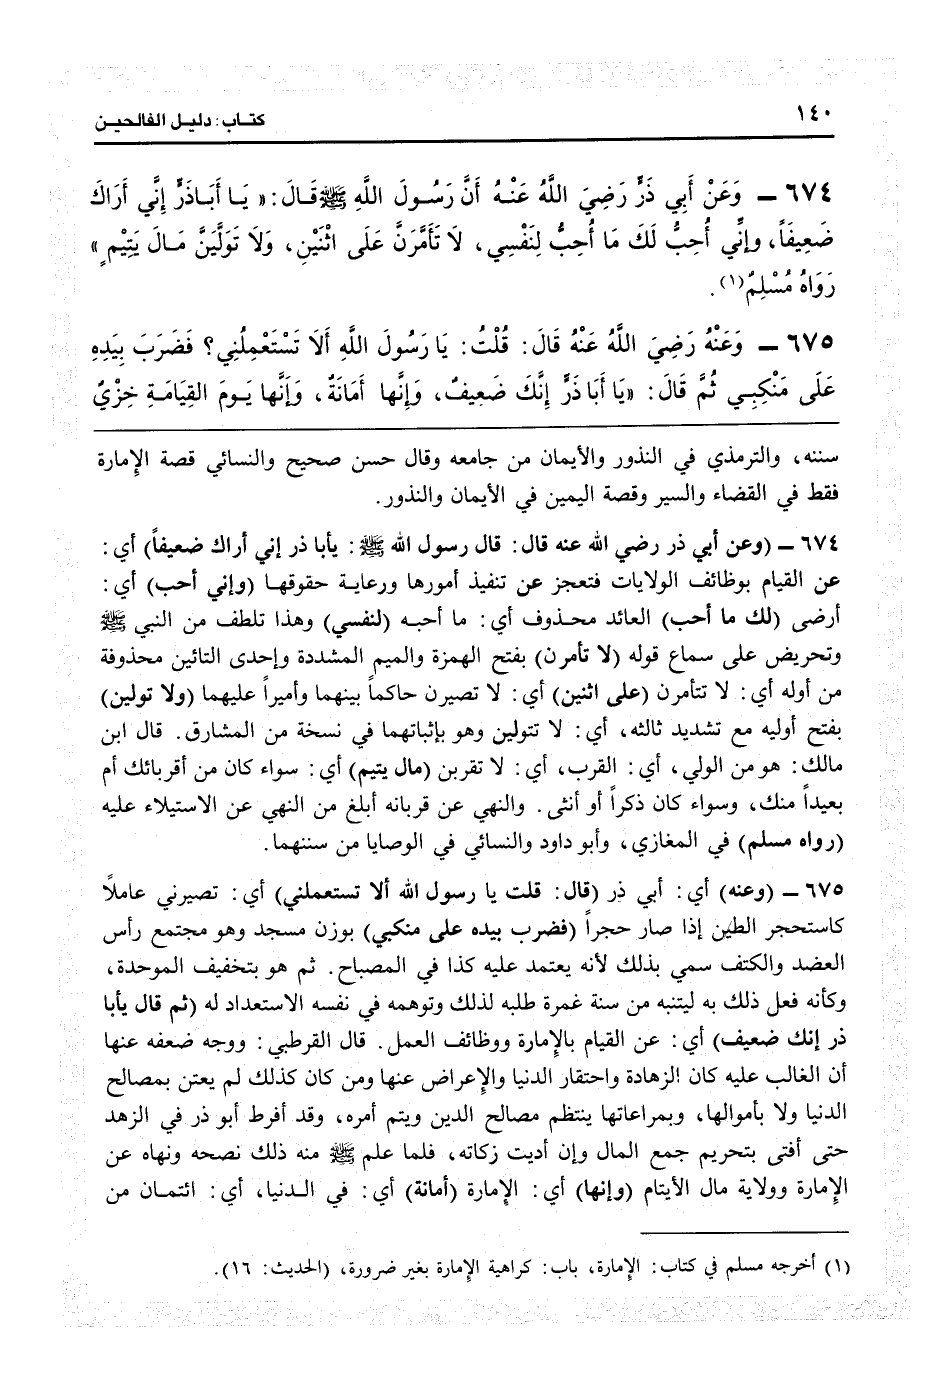 ١٤٠
كتاب: دليل الفالحين
٦٧٤ ـ وَعَنْ أَبِي ذَرٍّ رَضِيَ اللَّهُ عَنْهُ أَنَّ رَسُولَ اللَّهِ ﷺ قَالَ: « يَا أَبَاذَرٍّ إِنَّي أَرَاكَ
ضَعِيفَاً، وإنِّي أُحِبُّ لَكَ مَا أُحِبُّ لِنَفْسِي، لَا تَأَمَّرَنَّ عَلَى اثْنَيْنِ، وَلَا تَوَلَّيَنَّ مَالَ يَتِيْمٍ »
رَوَاهُ مُسْلِمٌ(١).
٦٧٥ ـ وَعَنْهُ رَضِيَ اللَّهُ عَنْهُ قَالَ: قُلْتُ: يَا رَسُولَ اللَّهِ أَلَا تَسْتَعْمِلُنِي؟ فَضَرَبَ بِيَدِهِ
عَلَى مَنْكِبِي ثُمَّ قَالَ: «يَا أَبَا ذَرٍّ إِنَّكَ ضَعِيفٌ، وَإِنَّها أَمَانَةٌ، وَإِنَّها يَومَ القِيَامَةِ خِزْيٌ
سننه، والترمذي في النذور والأيمان من جامعه وقال حسن صحيح والنسائي قصة الإمارة
فقط في القضاء والسير وقصة اليمين في الأيمان والنذور.
٦٧٤ ـ (وعن أبي ذر رضي الله عنه قال: قال رسول الله ﷺ: يأبا ذر إني أراك ضعيفاً) أي:
عن القيام بوظائف الولايات فتعجز عن تنفيذ أمورها ورعاية حقوقها (وإني أحب) أي:
أرضى (لك ما أحب) العائد محذوف أي: ما أحبه (لنفسي) وهذا تلطف من النبي ﷺ
وتحريض على سماع قوله (لا تأمرن) بفتح الهمزة والميم المشددة وإحدى التائين محذوفة
من أوله أي: لا تتأمرن (على اثنين) أي: لا تصيرن حاكماً بينهما وأميراً عليهما (ولا تولين)
بفتح أوليه مع تشديد ثالثه، أي: لا تتولين وهو بإثباتهما في نسخة من المشارق. قال ابن
مالك: هو من الولي، أي: القرب، أي: لا تقربن (مال يتيم) أي: سواء كان من أقربائك أم
بعيداً منك، وسواء كان ذكراً أو أنثى. والنهي عن قربانه أبلغ من النهي عن الاستيلاء عليه
(رواه مسلم) في المغازي، وأبو داود والنسائي في الوصايا من سننهما.
٦٧٥ ـ (وعنه) أي: أبي ذر (قال: قلت يا رسول الله ألا تستعملني) أي: تصيرني عاملاً
كاستحجر الطين إذا صار حجراً (فضرب بيده على منكبي) بوزن مسجد وهو مجتمع رأس
العضد والكتف سمي بذلك لأنه يعتمد عليه كذا في المصباح. ثم هو بتخفيف الموحدة،
وكأنه فعل ذلك به ليتنبه من سنة غمرة طلبه لذلك وتوهمه في نفسه الاستعداد له (ثم قال يأبا
ذر إنك ضعيف) أي: عن القيام بالإمارة ووظائف العمل. قال القرطبي: ووجه ضعفه عنها
أن الغالب عليه كان الزهادة واحتقار الدنيا والإعراض عنها ومن كان كذلك لم يعتن بمصالح
الدنيا ولا بأموالها، وبمراعاتها ينتظم مصالح الدين ويتم أمره، وقد أفرط أبو ذر في الزهد
حتى أفتى بتحريم جمع المال وإن أديت زكاته، فلما علم ﷺ منه ذلك نصحه ونهاه عن
الإمارة وولاية مال الأيتام (وإنها) أي: الإمارة (أمانة) أي: في الدنيا، أي: ائتمان من
(١) أخرجه مسلم في كتاب: الإمارة، باب: كراهية الإمارة بغير ضرورة، (الحديث: ١٦).